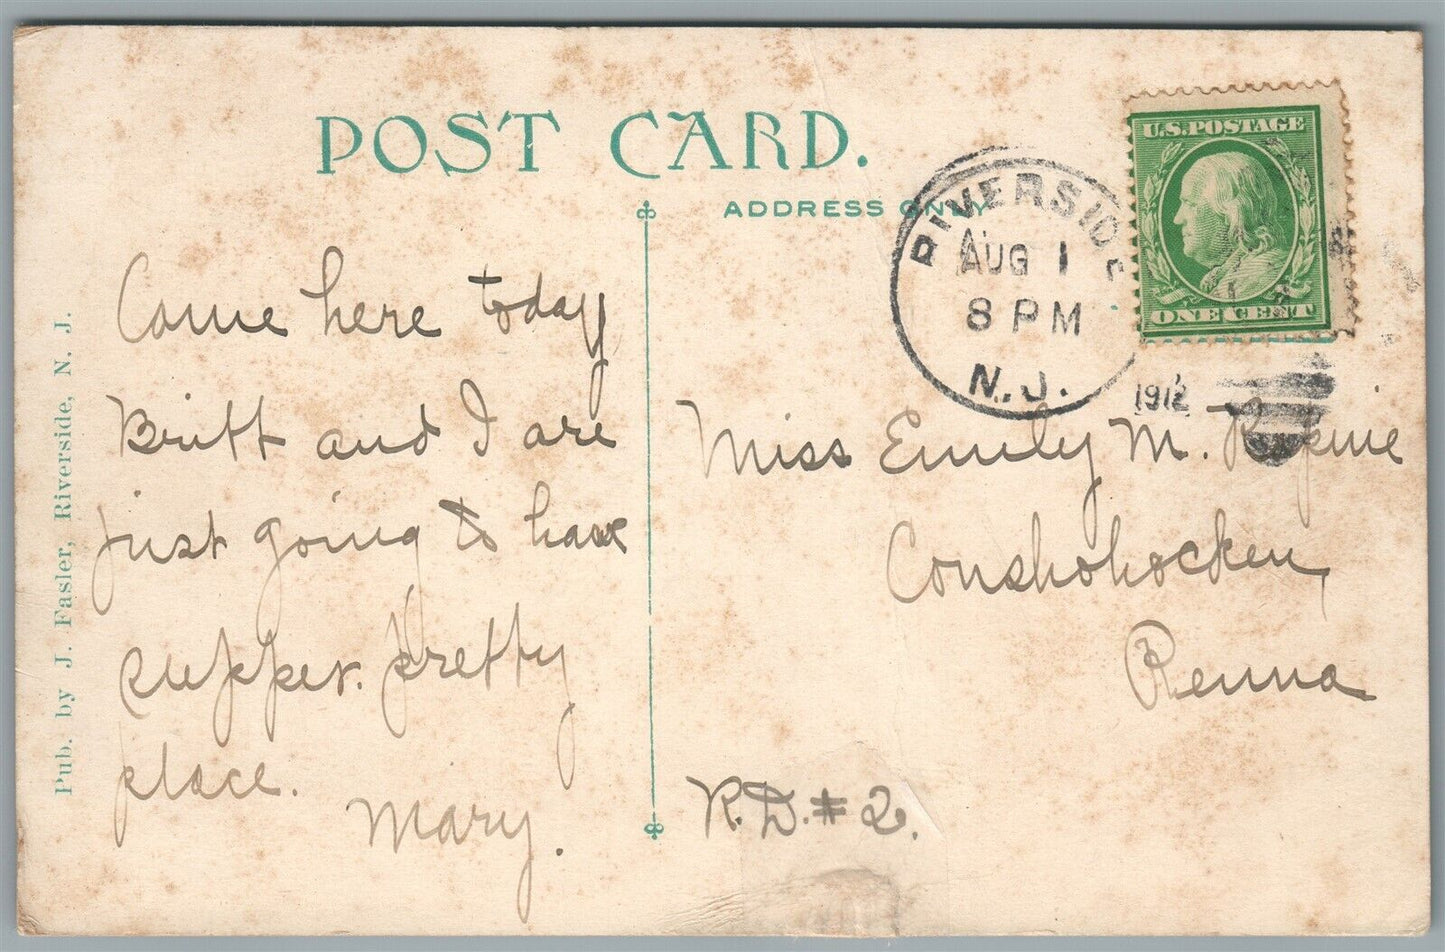 POST CARD.
ADDRESS ONLY
RIVERSIDE
AUG 1
8 PM
N.J.
1912
U.S. POSTAGE
ONE CENT
Pub. by J. Fasler, Riverside, N. J.
Came here today
Britt and I are
just going to have
supper. Pretty
place.
Mary.
Miss Emily M.
Conshohocken,
Penna
R.D. # 2.